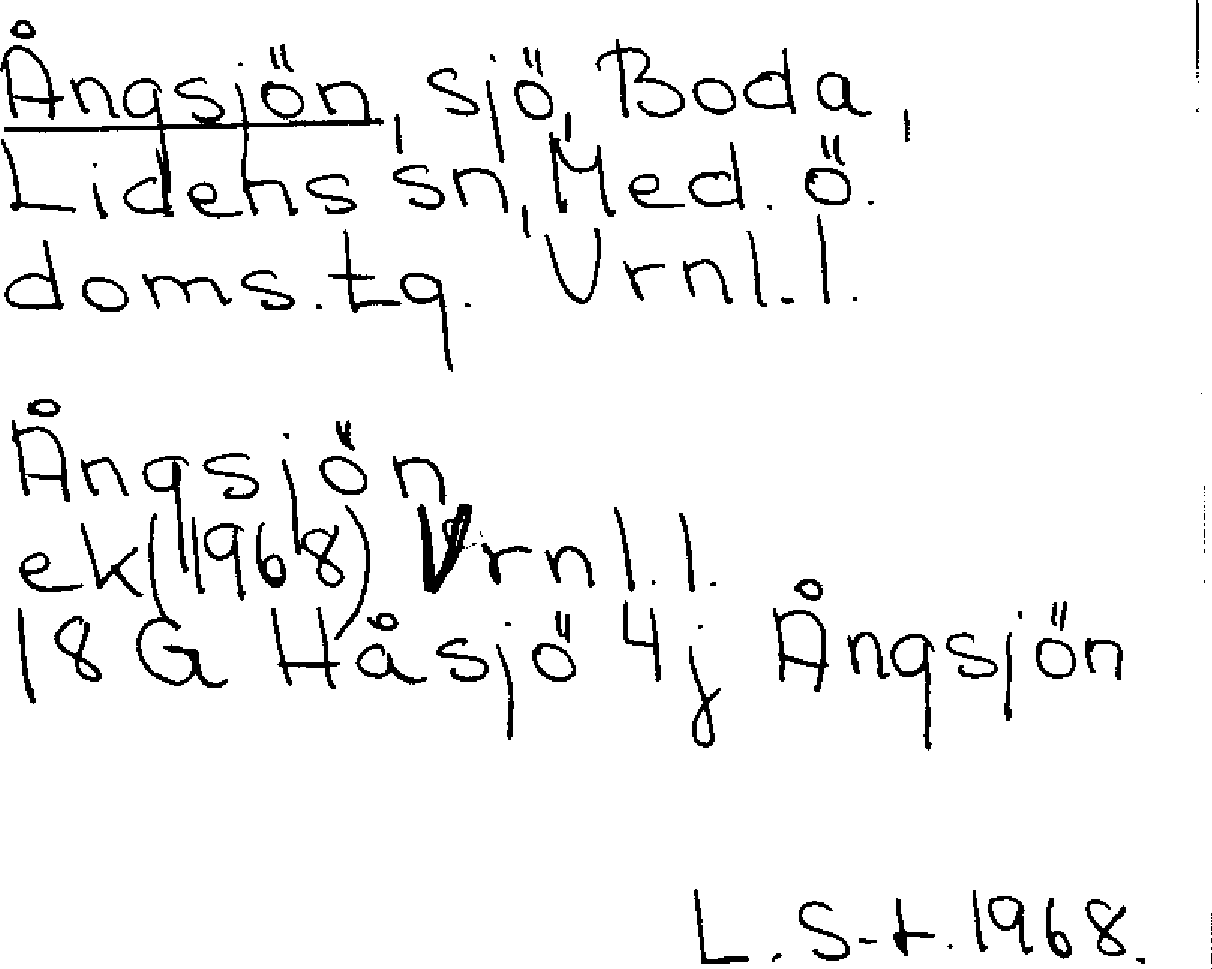 Ångsjön, sjö, Boda,
Lidens sn, Med. ö.
doms.tg. Vrnl.l.
Ångsjön
ek(1968) Vrnl.l.
18 G Håsjö 4j Ångsjön
L. S-t. 1968.